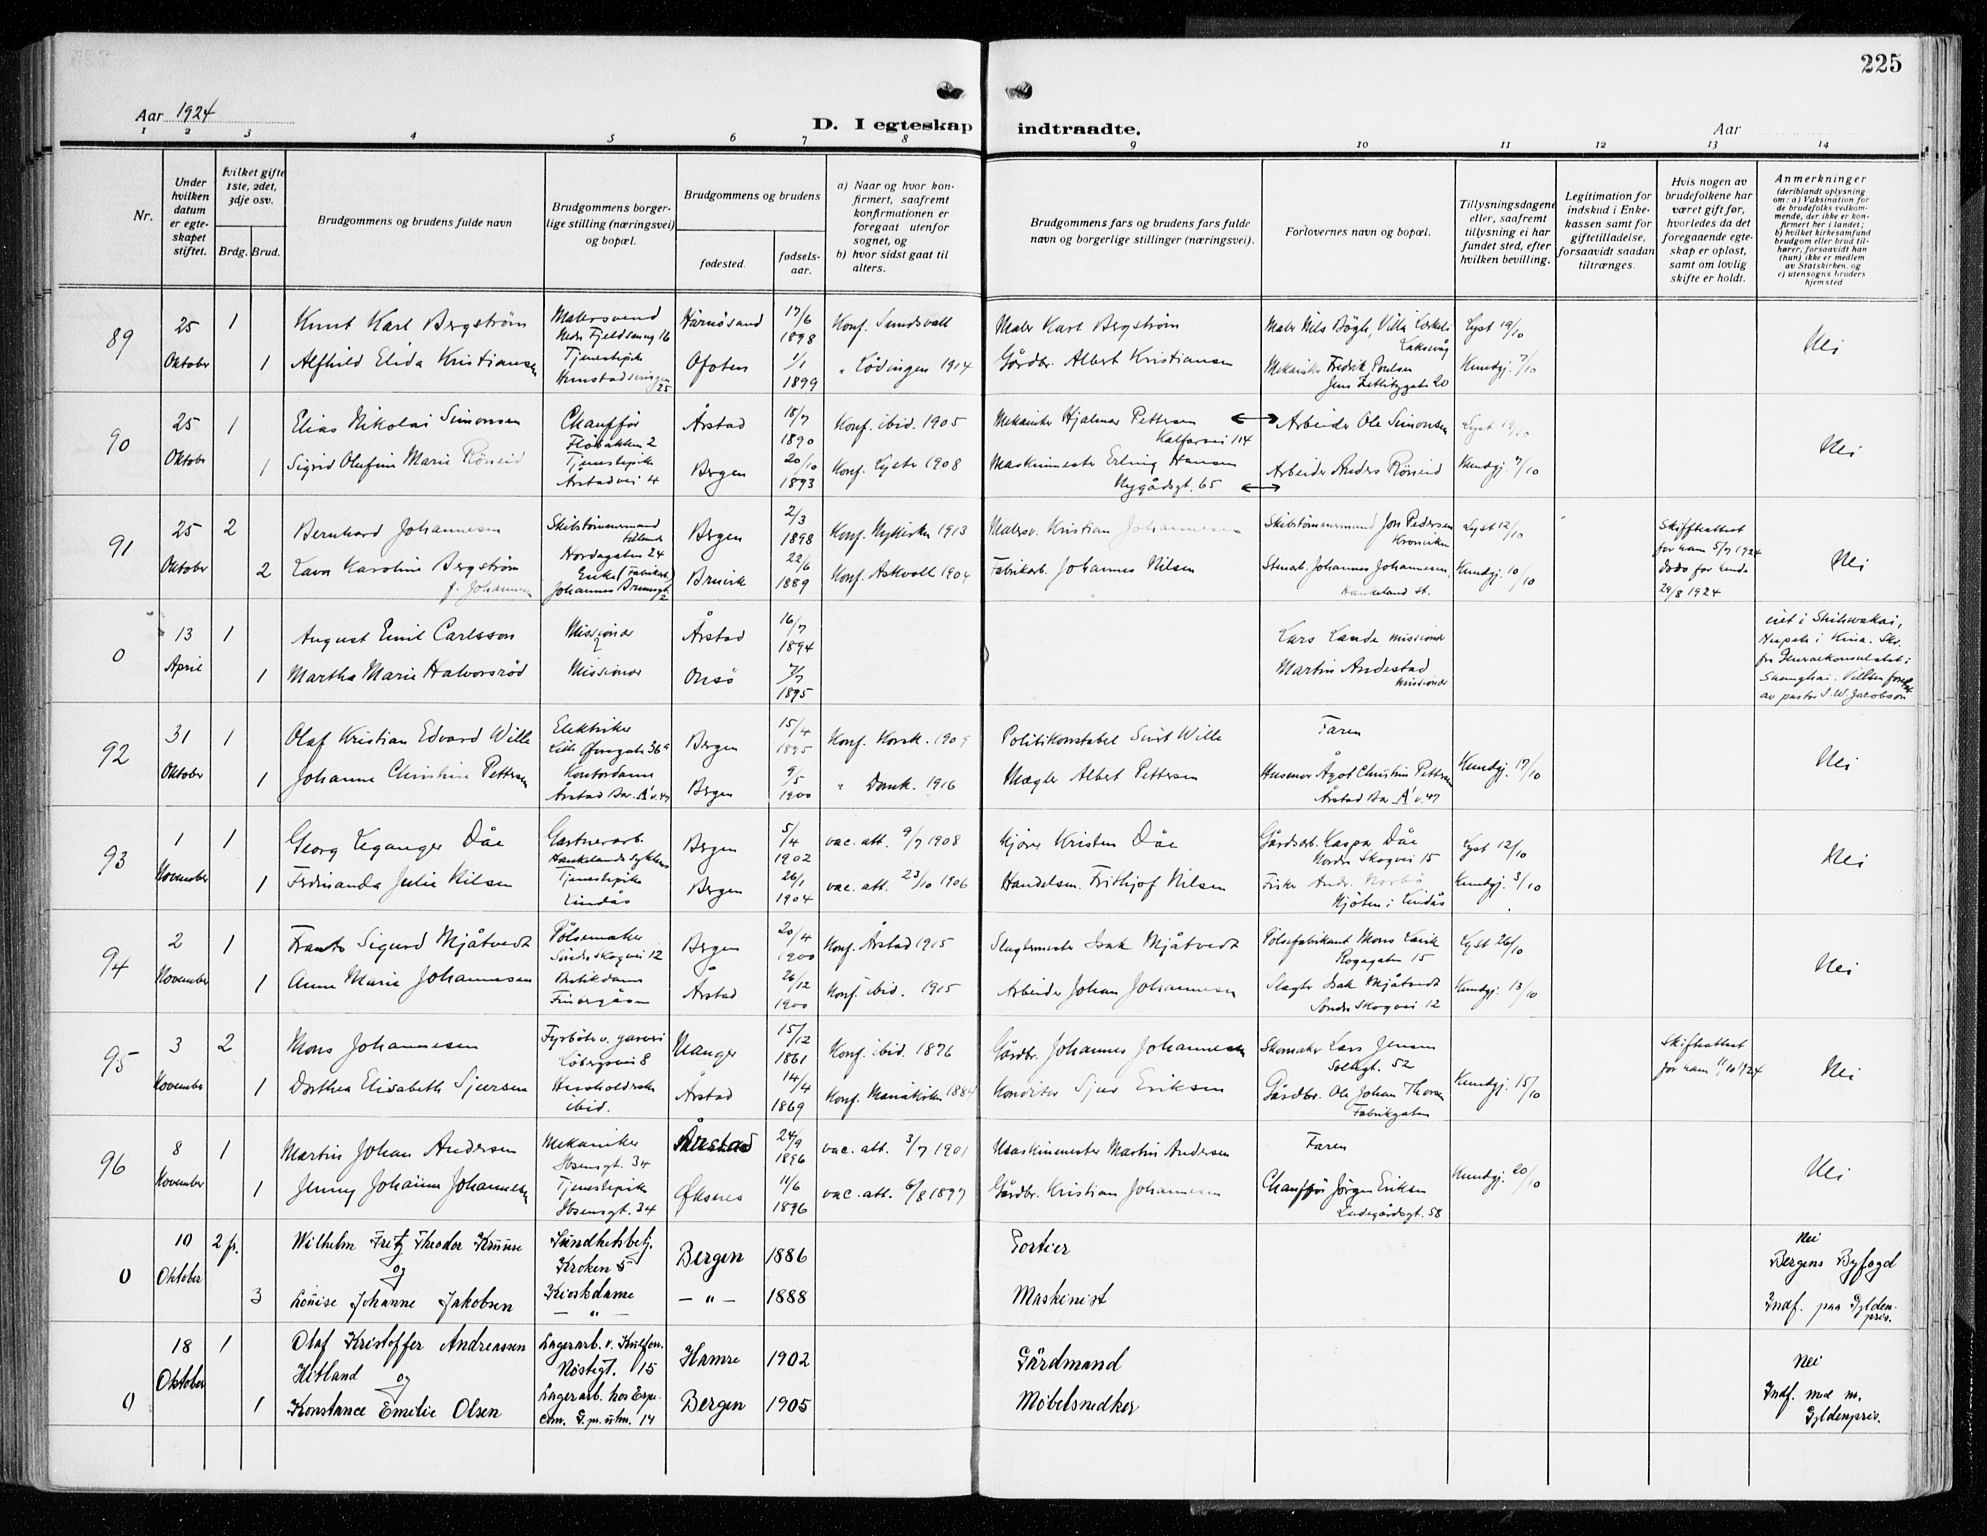 225
Aar 1924
D. I egteskap indtraadte.
Aar
1 2 3 4 5 6 7 8 9 10 11 12 13 14
Nr.
Under hvilken datum er egteskapet stiftet.
Hvilket gifte 1ste, 2det, 3dje osv.
Brdg. Brud.
Brudgommens og brudens fulde navn
Brudgommens borgerlige stilling (næringsvei) og bopæl.
Brudgommens og brudens
fødested.
fødselsaar.
a) Naar og hvor konfirmert, saafremt konfirmationen er foregaat utenfor sognet, og
b) hvor sidst gaat til alters.
Brudgommens fars og brudens fars fulde navn og borgerlige stillinger (næringsvei).
Forlovernes navn og bopæl.
Tillysningsdagene eller, saafremt tillysning ei har fundet sted, efter hvilken bevilling.
Legitimation for indskud i Enkekassen samt for giftetilladelse, forsaavidt saadan tiltrænges.
Hvis nogen av brudefolkene har været gift før, hvorledes da det foregaaende egteskap er opløst, samt om lovlig skifte er holdt.
Anmerkninger (deriblandt oplysning om: a) Vaksination for de brudefolks vedkommende, der ikke er konfirmert her i landet; b) hvilket kirkesamfund brudgom eller brud tilhører, forsaavidt han (hun) ikke er medlem av Statskirken, og c) utensogns bruders hjemsted
89 25 1 Knut Karl Bergström Malersvend Nedre Fjeldsmug 16 Härnösand 17/6 1898 Konf. Sundsvall Maler Karl Bergström Maler Nils Bøgh, Villa Lærkeli Laksevåg Lyst 19/10 Nei
Oktober 1 Alfhild Elida Kristiansen Tjenestepike 25 Ofoten 1/1 1899 " Lødingen 1914 Gårdbr. Albert Kristiansen Mekaniker Fredrik Poulsen Jens Zetlitzgate 20 Kundgj. 7/10
90 25 1 Elias Nikolai Simonsen Chauffør Fløbakken 2 Årstad 18/7 1890 Konf. ibid. 1905 Mekaniker Hjalmar Pettersen Kalfarvei 114 Arbeider Ole Simonsen Lyst 19/10 Nei
Oktober 1 Sigrid Olufine Marie Røneid Tjenestepike Årstadvei 4 Bergen 20/10 1893 Konf. Lyster 1908 Maskinmester Erling Hansen Nygårdsgt. 65 Arbeider Anders Røneid Kundgj. 7/10
91 25 2 Bernhard Johannesen Skibstømmermand Nordagaten 24 Bergen 2/3 1898 Konf. Nykirken 1913 Malersv. Kristian Johannesen Skibstømmermand Jon Pedersen Kronviken Lyst 12/10 Skifteattest for ham 5/7 1924 Nei
Oktober 2 Lava Karoline Bergström f. Johannesen Enke (Fabrikarb.) Johannes Brunsgt. 2 Bruvik 22/6 1889 Konf. Askvoll 1904 Fabrikarb. Johannes Nilsen Stenarb. Johannes Johannesen, Haukeland st. Kundgj. 10/10 Dodo for hende 29/8 1924
0 13 1 August Emil Carlsson Missionær Årstad 16/7 1894 Lars Lande missionær viet i Shihwakai, Hupeh i Kina. Skr. fra Generalkonsulatet i Shanghai. Vielsen foretat av pastor I. W. Jacobson
April 1 Martha Marie Halvorsrød Missionær Onsø 7/7 1895 Martin Andestad missionær
92 31 1 Olaf Kristian Edvard Wille Elektriker Lille Øvregaten 36 a Bergen 15/4 1895 Konf. Korsk. 1909 Politikonstabel Sivert Wille Faren Nei
Oktober 1 Johanne Christine Pettersen Kontordame Årstad Bar. A' v. 47 Bergen 9/5 1900 " Domk. 1916 Mægler Albert Pettersen Husmor Ågot Christine Pettersen Årstad Bar A' v. 47 Kundgj. 17/10
93 1 1 Georg Leganger Dåe Gartnerarb. Haukelands sykehus Bergen 5/4 1902 vac. att. 9/7 1908 Kjører Kristen Dåe Gårdsarb. Kaspar Dåe Nordre Skogvei 15 Lyst 12/10 Nei
November 1 Ferdinanda Julie Nilsen Tjenestepike Lindås Bergen 26/1 1904 vac. att. 23/10 1906 Handelsm. Frithjof Nilsen Fisker Andr. Norbø Mjøten i Lindås Kundgj. 3/10
94 2 1 Frantz Sigurd Mjåtvedt Pølsemaker Søndre Skogvei 12 Bergen 20/4 1900 Konf. Årstad 1915 Slagtermester Isak Mjåtvedt Pølsefabrikant Mons Larik Rogagaten 15 Lyst 26/10 Nei
November 1 Anna Marie Johannesen Butikdame Finnegården Årstad 26/12 1900 Konf. ibid. 1915 Arbeider Johan Johannesen Slagter Isak Mjåtvedt Søndre Skogvei 12 Kundgj. 13/10
95 3 2 Mons Johannesen Fyrbøter v. garveri Løbergsvei 8 Manger 15/12 1861 Konf. ibid. 1876 Gårdbr. Johannes Johannesen Skomaker Lars Jensen Solhgt. 52 Skifteattest for ham 11/10 1924 Nei
November 1 Dorthea Elisabeth Sjursen Husholderske ibid. Årstad 14/4 1869 Konf. Mariakirken 1884 Konditor Sjur Eriksen Gårdbr. Ole Johan Thorsen Fabrikgaten Kundgj. 15/10
96 8 1 Martin Johan Andersen Mekaniker Ibsensgt. 34 Årstad 24/9 1896 vac. att. 3/7 1901 Maskinmester Martin Andersen Faren Nei
November 1 Jenny Johanna Johannesen Tjenestepike Ibsensgt. 34 Øksnes 11/6 1896 vac. att. 6/8 1897 Gårdbr. Kristian Johannesen Chauffør Jørgen Eriksen Ladegårdsgt. 58 Kundgj. 20/10
0 10 2 fr. Wilhelm Fritz Theodor Kruuse Sundhetsbetj. Kroken 5 Bergen 1886 Portier Nei Bergens Byfogd
Oktober og
3 Louise Johanne Jakobsen Kioskdame — " — — " — 1888 Maskinist Indf. paa Gyldenpris.
0 18 1 Olaf Kristoffer Andreassen Hitland Lagerarb. v. Kulfor. Nøstegt. 15 Hamre 1902 Gårdmand Nei
Oktober og
1 Konstance Emilie Olsen Lagerarb. hos 14 Bergen 1905 Møbelsnedker Indf. med m. Gyldenpris.